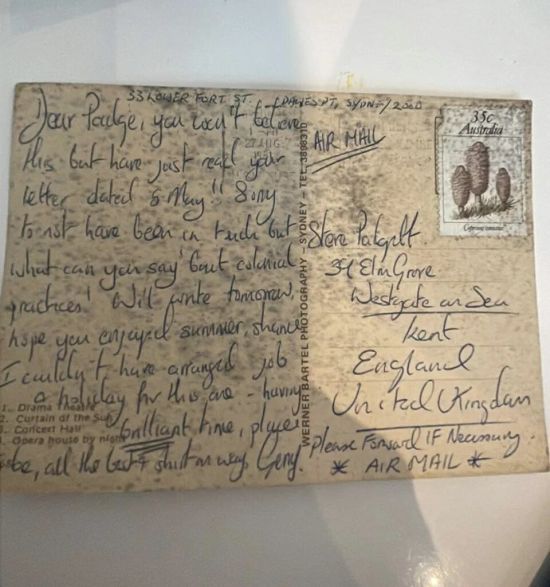 33 LOWER FORT ST. DAWES PT, SYDNEY 2000
Dear Padge, you won't believe
this but have just read your
letter dated 5 May!! Sorry
to not have been in touch but
what can you say 'bout colonial
practices! Will write tomorrow,
hope you enjoyed summer, shame
I couldn't have arranged job
& holiday for this one - having
brilliant time, place
to be, all the best
1. Drama Theatre
2. Curtain of the Sun
3. Concert Hall
4. Opera house by night
27 AUG
WERNER BARTEL PHOTOGRAPHY - SYDNEY - TEL.
AIR MAIL
35c
Australia
Steve
39 Elm Grove
Westgate on Sea
Kent
England
United Kingdom
Please Forward IF Necessary.
* AIR MAIL *